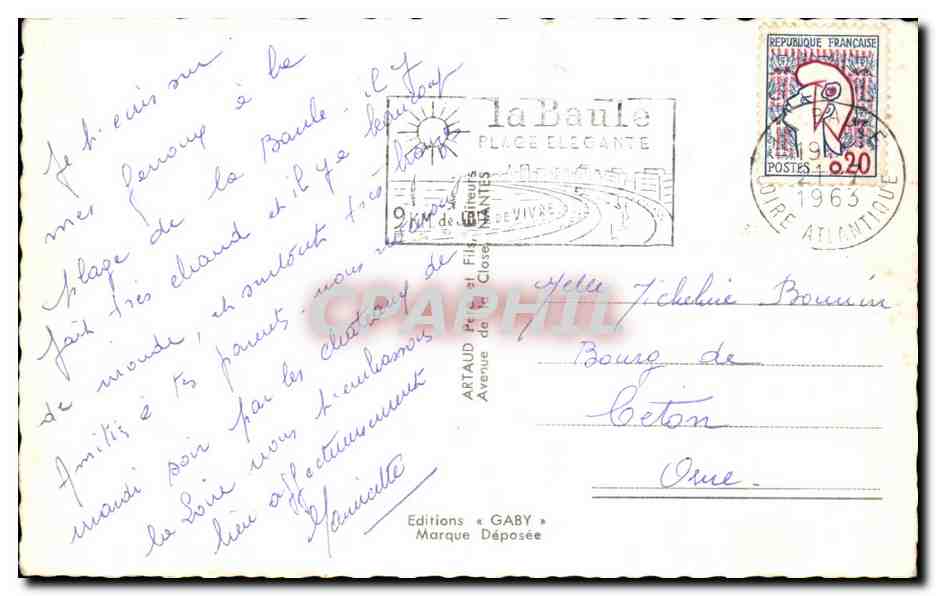 Je t'écris sur
mes genoux à la
plage de la Baule. il y
fait très chaud et il y a beaucoup
de monde, et surtout très
Amitié à tes parents. nous
mardi soir par les châteaux de
la Loire nous t'embrassons
bien affectueusement
la Baule
PLAGE ELEGANTE
9 KM de DE VIVRE
ARTAUD Père et Fils, Editeurs
Avenue de la Close, NANTES
CPAPHIL
REPUBLIQUE FRANÇAISE
POSTES 0,20
1963
LOIRE ATLANTIQUE
Melle Micheline Bonnin
Bourg de
Ceton
Orne.
Editions « GABY »
Marque Déposée